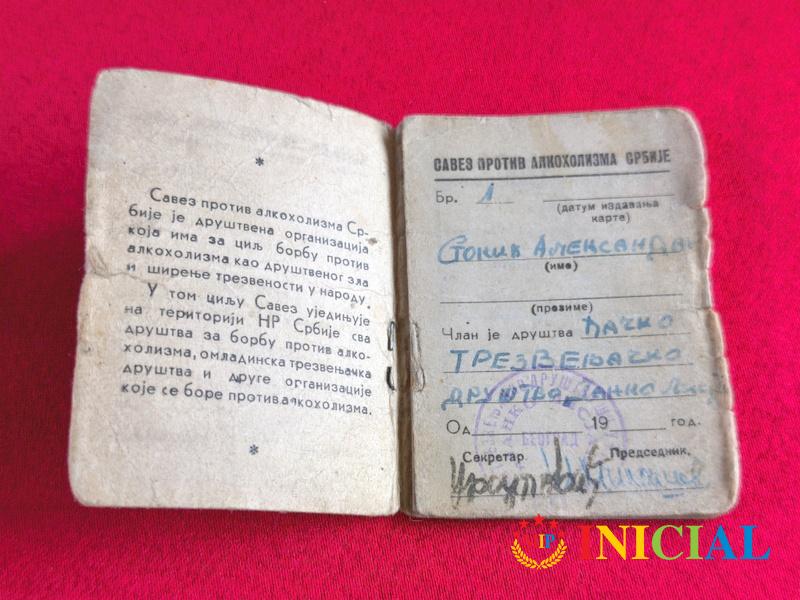 *
Савез против алкохолизма Ср-
бије је друштвена организација
која има за циљ борбу против
алкохолизма као друштвеног зла
и ширење трезвености у народу.
У том циљу Савез уједињује
на територији НР Србије сва
друштва за борбу против алко-
холизма, омладинска трезвењачка
друштва и друге организације
које се боре против алкохолизма.
*
САВЕЗ ПРОТИВ АЛКОХОЛИЗМА СРБИЈЕ
Бр. 1
(датум издавања
карте)
Стокић Александар
(име)
(презиме)
Члан је друштва Ђачко
ТРЕЗВЕЊАЧКО
ДРУШТВО
Од 19 год.
БЕОГРАД
Секретар, Председник,
IP INICIAL